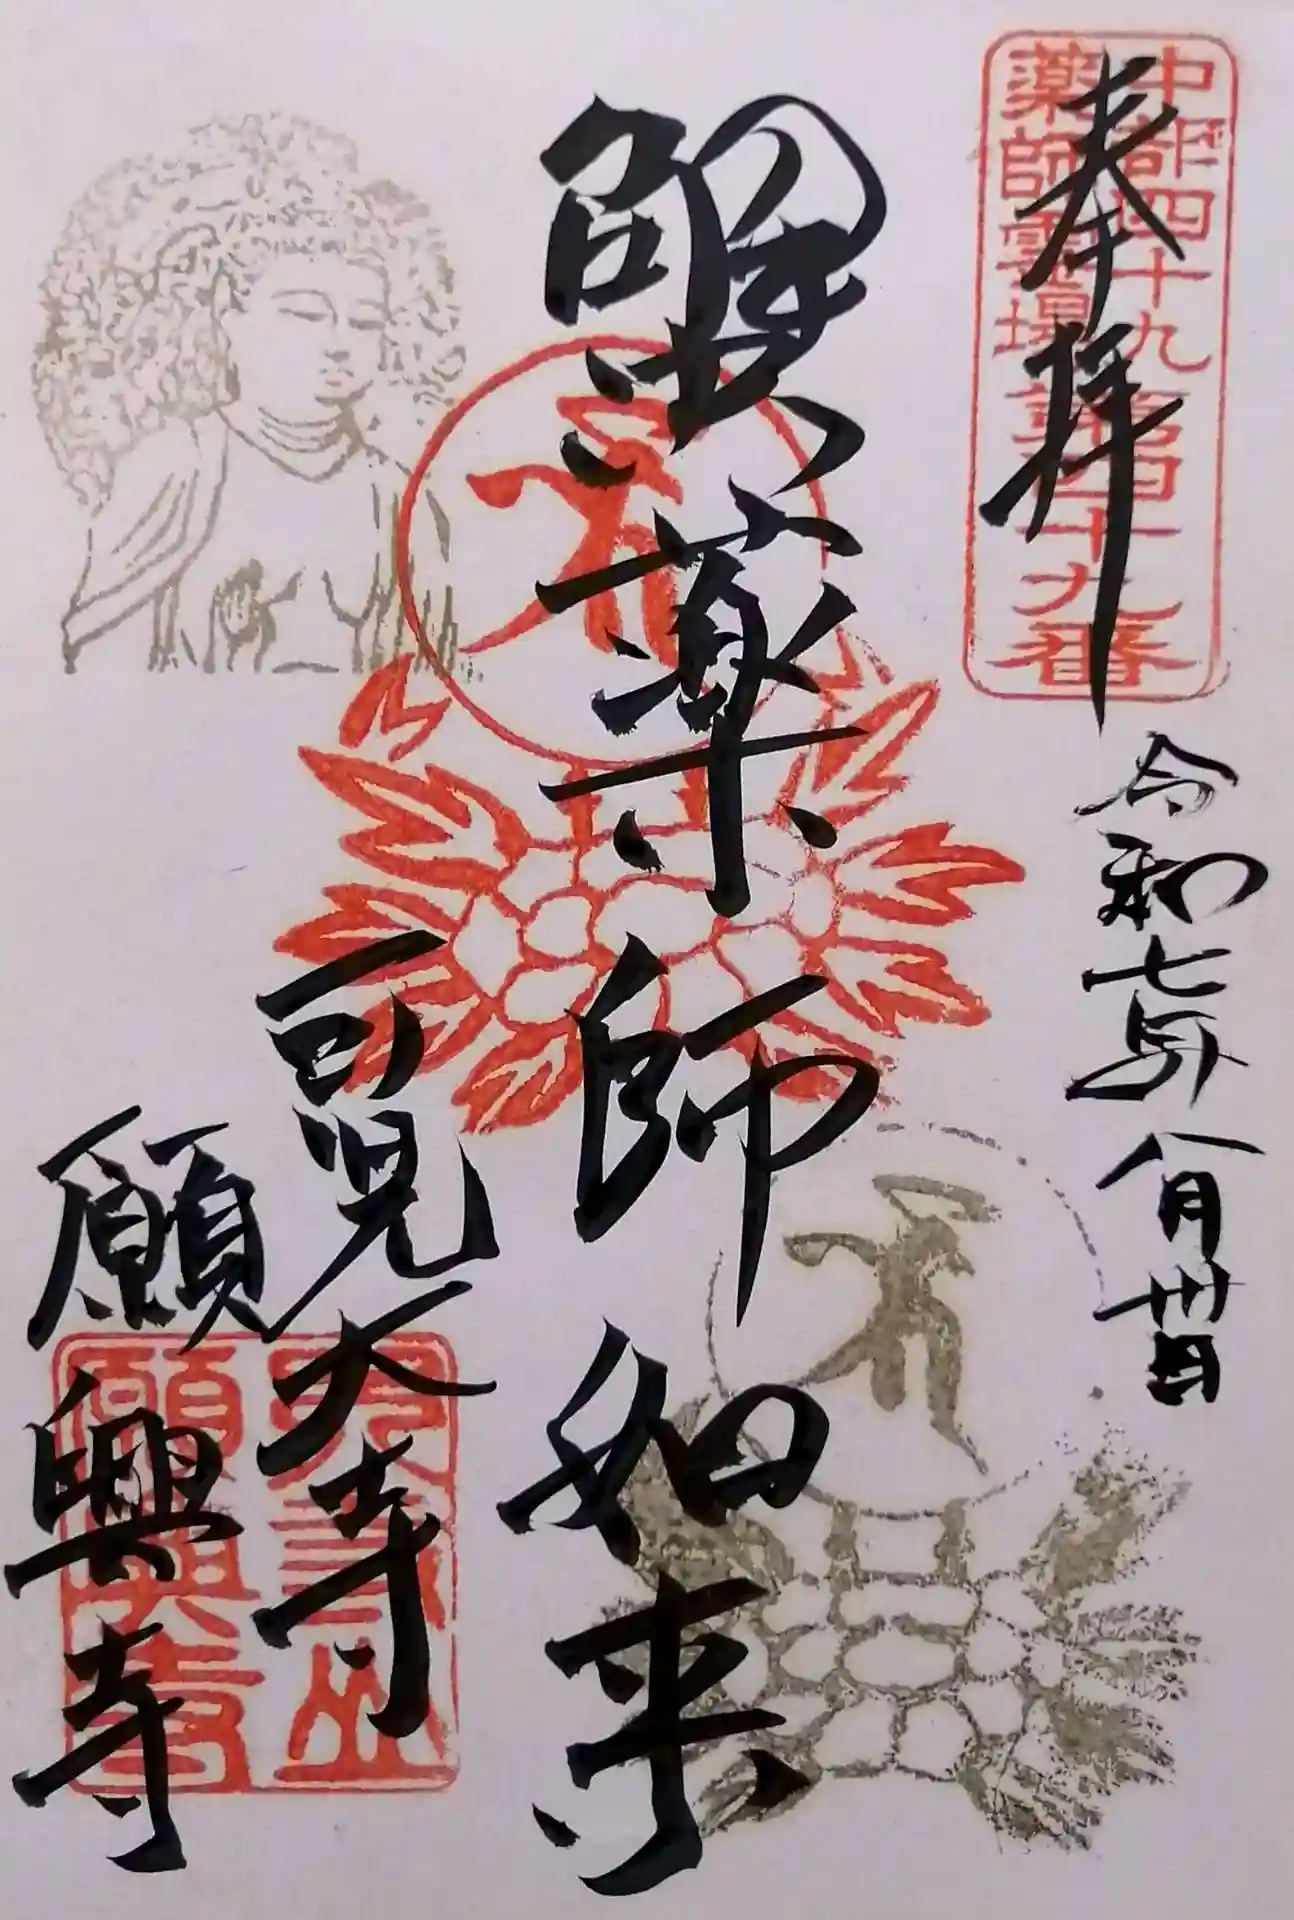 奉拝
中部四十九
薬師霊場第四十九番
令和七年八月卅日
蟹薬師如来
可児大寺
願興寺
大寺山
願興寺